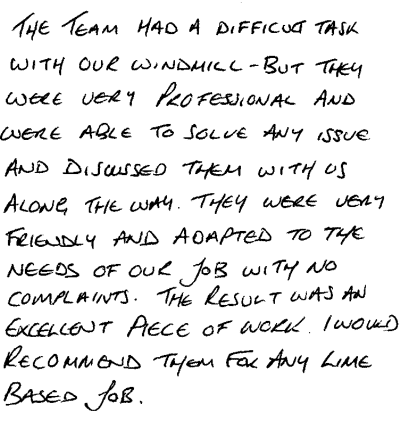 THE TEAM HAD A DIFFICULT TASK
WITH OUR WINDMILL - BUT THEY
WERE VERY PROFESSIONAL AND
WERE ABLE TO SOLVE ANY ISSUE
AND DISCUSSED THEM WITH US
ALONG THE WAY. THEY WERE VERY
FRIENDLY AND ADAPTED TO THE
NEEDS OF OUR JOB WITH NO
COMPLAINTS. THE RESULT WAS AN
EXCELLENT PIECE OF WORK. I WOULD
RECOMMEND THEM FOR ANY LIME
BASED JOB.